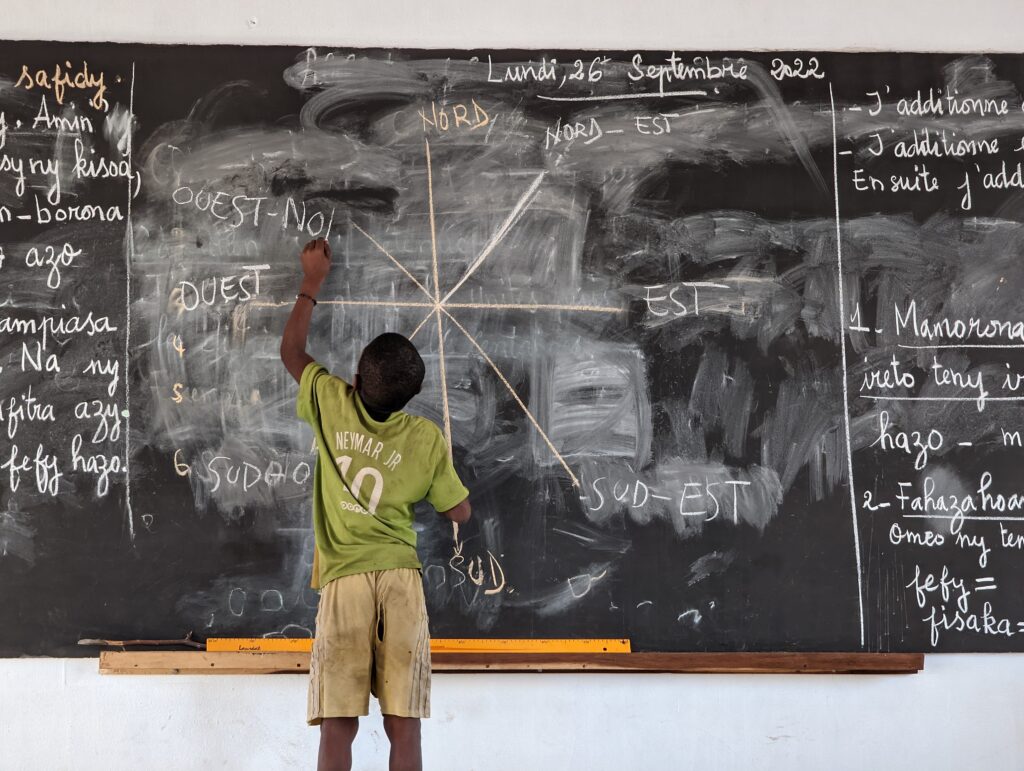 safidy.
Amin'
sy ny kisoa,
n-borona
azo
ampiasa
. Na ny
afitra azy.
fefy hazo.
Lundi, 26 Septembre 2022
NORD
NORD-EST
OUEST-NO
OUEST
EST
4
5
6 SUDHO
SUD-EST
SUD
NEYMAR JR
10
- J'additionne
- J'additionne
Ensuite j'add
1- Mamorona
ireto teny
hazo -
2- Fahazahoa
Omeo ny
fefy =
fisaka =